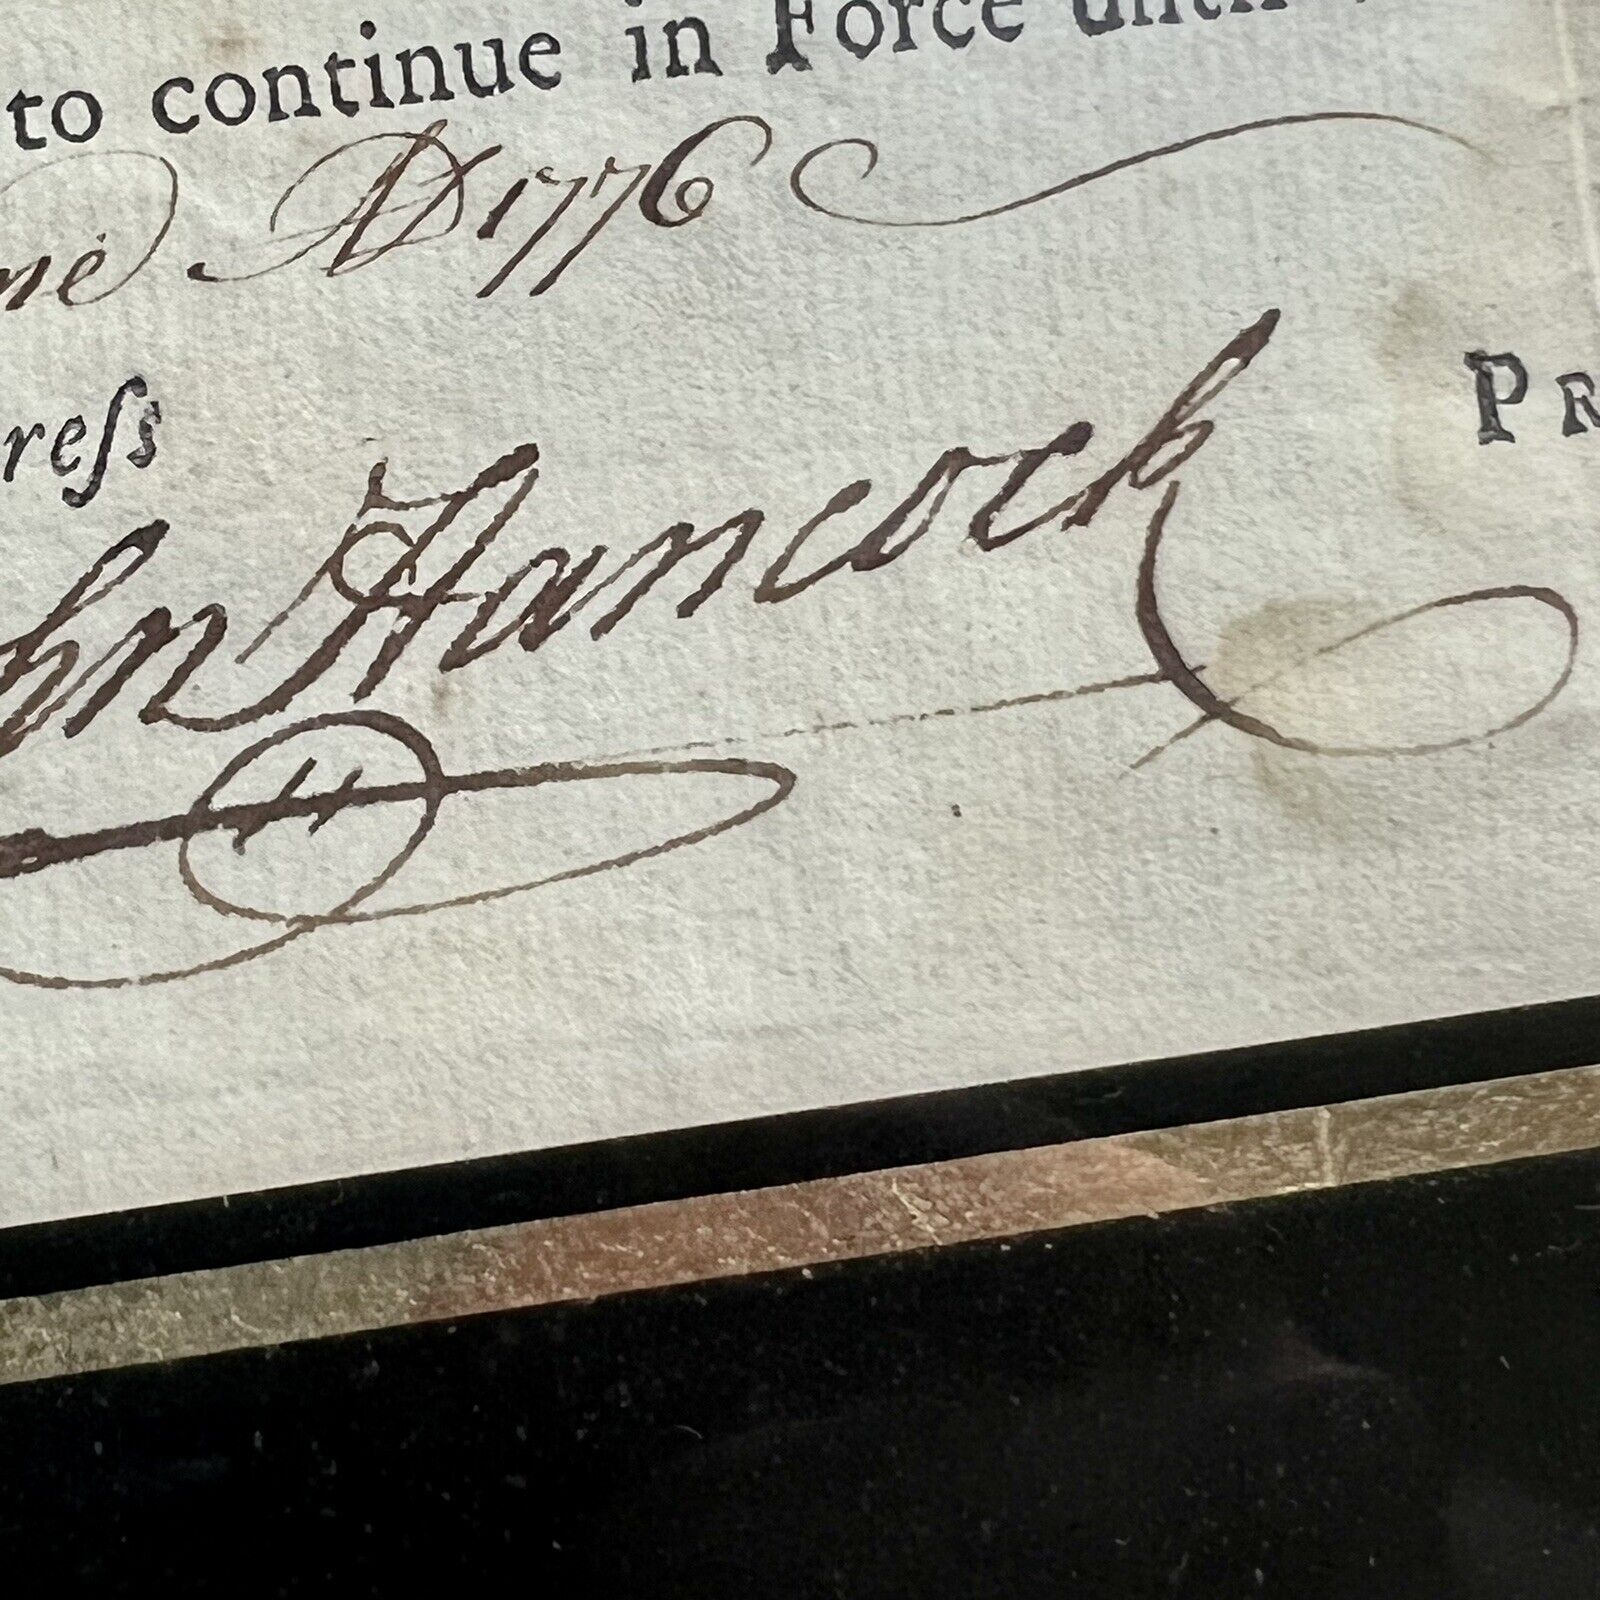 to continue in Force until
AD 1776
reſs
hn Hancock
PR